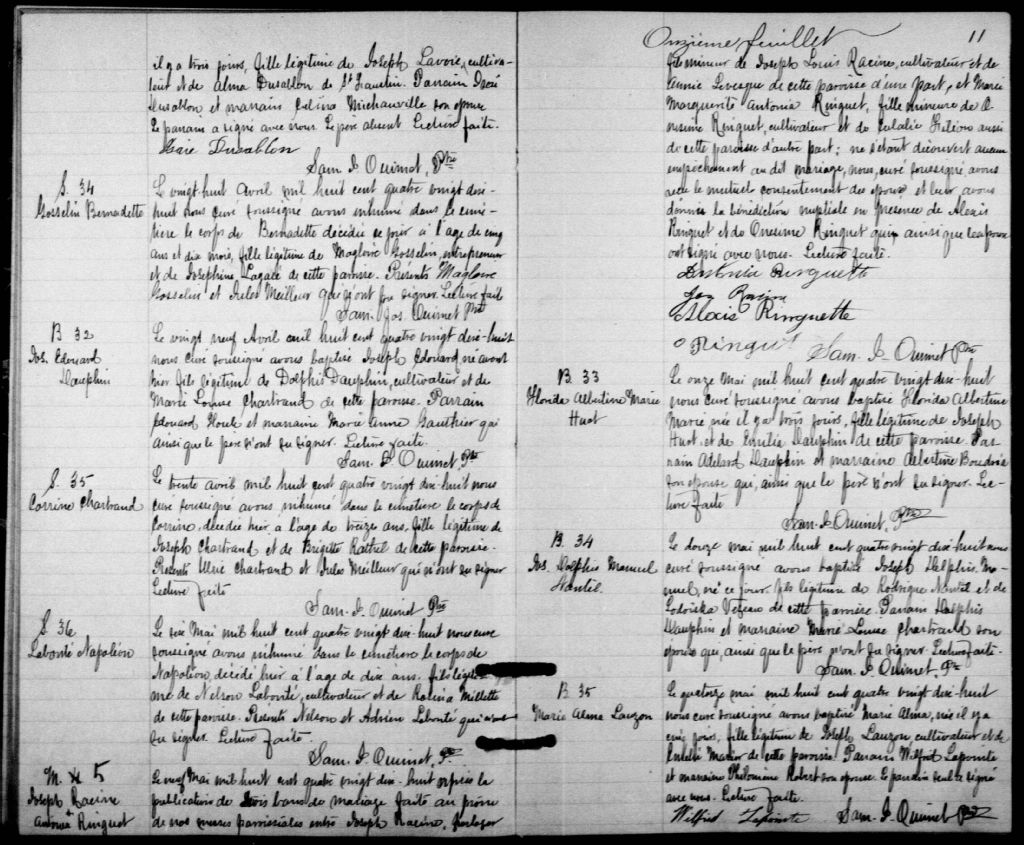 il y a trois jours, fille légitime de Joseph Lavoie, cultiva-
teur et de Alma Dusablon de St Faustin. Parrain
Dusablon et marraine Celina Michauville son épouse
Le parrain a signé avec nous. Le père absent Lecture faite.
Dusablon
Sam. J. Ouimet, Ptre
S. 34
Gosselin Bernadette
Le vingt-huit Avril mil huit cent quatre vingt dix-
huit nous curé soussigné avons inhumé dans le cime-
tière le corps de Bernadette décédée ce jour à l'age de cinq
ans et dix mois, fille légitime de Magloire Gosselin, entrepreneur
et de Josephine Lagacé de cette paroisse. Présents Magloire
Gosselin et Jules Meilleur qui n'ont su signer. Lecture faite
Sam. Jos. Ouimet Ptre
B 32
Jos. Edouard
Dauphin
Le vingt neuf Avril mil huit cent quatre vingt dix-huit
nous curé soussigné avons baptisé Joseph Edouard né avant
hier fils légitime de Dolphis Dauphin, cultivateur et de
Marie Louise Chartrand de cette paroisse. Parrain
Edouard Houle et marraine Marie Anne Gauthier qui
ainsi que le père n'ont su signer. Lecture faite.
Sam. J. Ouimet, Ptre
S. 35
Corrine Chartrand
Le trente avril mil huit cent quatre vingt dix-huit nous
curé soussigné avons inhumé dans le cimetière le corps de
Corrine, décédée hier à l'age de treize ans, fille légitime de
Joseph Chartrand et de Brigitte de cette paroisse.
Présents Chartrand et Jules Meilleur qui n'ont su signer
Lecture faite
Sam. J. Ouimet Ptre
S 36
Labonté Napoléon
Le six Mai mil huit cent quatre vingt dix-huit nous curé
soussigné avons inhumé dans le cimetière le corps de
Napoléon, décédé hier à l'age de dix ans. fils légiti-
me de Nelson Labonté, cultivateur et de Millette
de cette paroisse. Présents Nelson et Adrien Labonté qui n'ont
su signer. Lecture faite.
Sam. J. Ouimet, P.
M. 5
Joseph Racine
Antonia Ringuet
Le neuf Mai mil huit cent quatre vingt dix-huit après la
publication de trois bans de mariage faite au prône
de nos messes paroissiales entre Joseph Racine,
Onzième feuillet
11
fils mineur de Joseph Louis Racine, cultivateur et de
Annie Levesque de cette paroisse d'une part, et Marie
Marguerite Antonia Ringuet, fille mineure de O-
nesime Ringuet, cultivateur et de Eulalie aussi
de cette paroisse d'autre part; ne s'étant découvert aucun
empêchement au dit mariage, nous, curé soussigné, avons
reçu le mutuel consentement des époux et leur avons
donnés la bénédiction nuptiale en présence de Alexis
Ringuet et de Onesime Ringuet qui, ainsi que les époux
ont signé avec nous. Lecture faite.
Antonia Ringuette
Jos Racine
Alexis Ringuette
O Ringuet
Sam. J. Ouimet Ptre
B. 33
Florida Albertine Marie
Huot
Le onze Mai mil huit cent quatre vingt dix-huit
nous curé soussigné avons baptisé Florida Albertine
Marie née il y a trois jours, fille légitime de Joseph
Huot, et de Emilia Dauphin de cette paroisse. Par-
rain Adelard Dauphin et marraine Albertine Boudria
son épouse qui, ainsi que le père n'ont su signer. Lec-
ture faite
Sam. J. Ouimet, Ptre
B. 34
Jos. Dolphis Manuel
Nantel.
Le douze mai mil huit cent quatre vingt dix-huit nous
curé soussigné avons baptisé Joseph Dolphis Ma-
nuel, né ce jour, fils légitime de Rodrigue Nantel et de
Vezeau de cette paroisse. Parrain Dolphis
Dauphin et marraine Marie Louise Chartrand son
épouse qui, ainsi que le père n'ont su signer. Lecture faite.
Sam. J. Ouimet. Ptre
B 35
Marie Alma Lauzon
Le quatorze mai mil huit cent quatre vingt dix-huit
nous curé soussigné avons baptisé Marie Alma, née il y a
cinq jours, fille légitime de Joseph Lauzon cultivateur et de
de cette paroisse. Parrain Wilfrid Lapointe
et marraine Philomène Robert son épouse. Le parrain seul a signé
avec nous. Lecture faite.
Wilfrid Lapointe
Sam. J. Ouimet Ptre